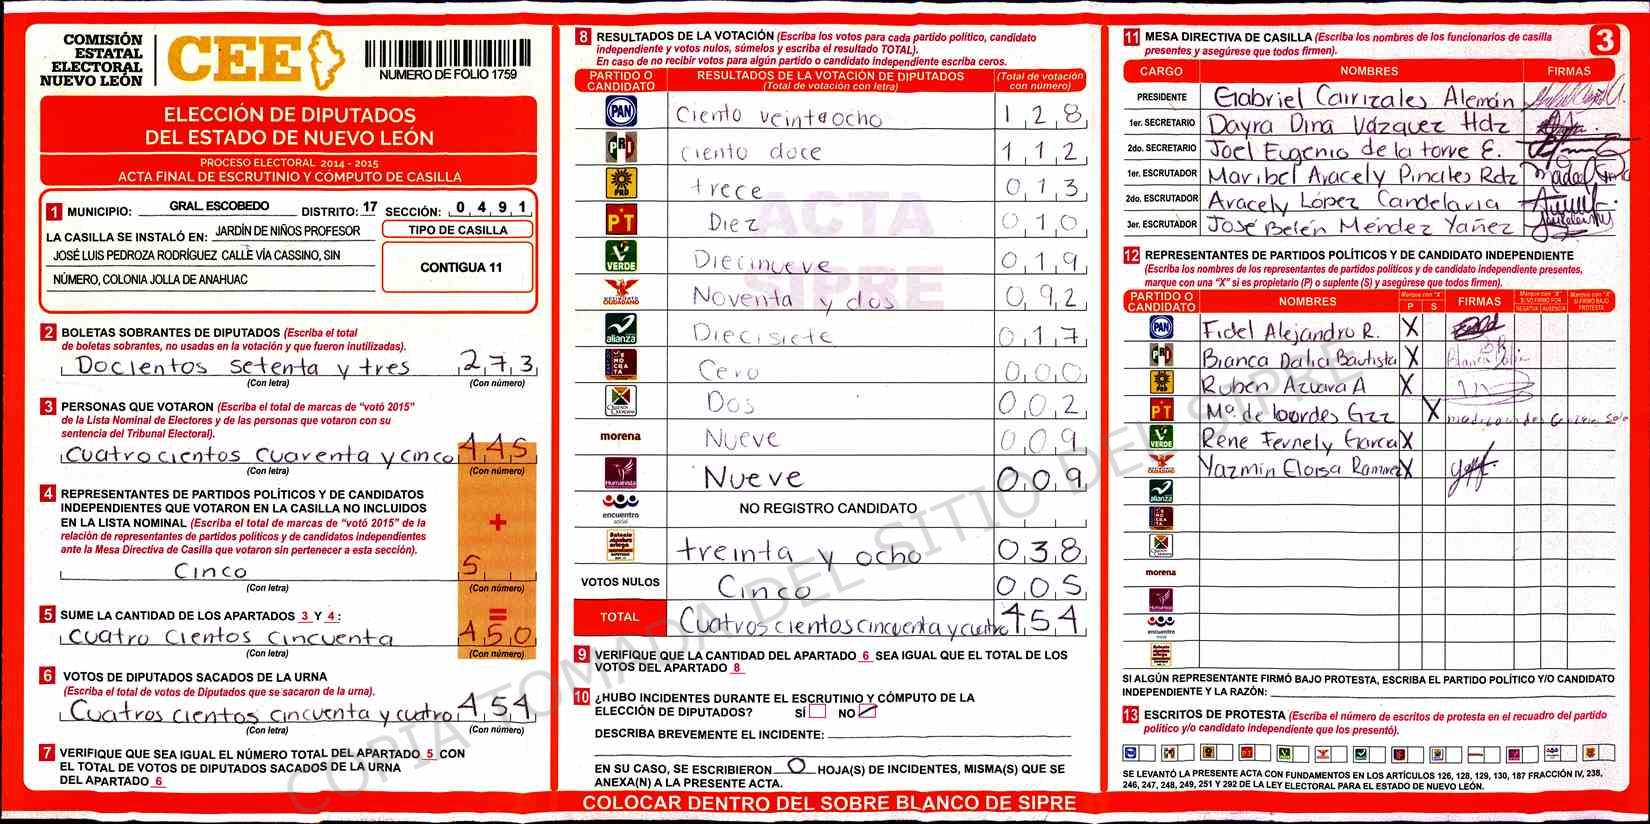 COMISIÓN
ESTATAL
ELECTORAL
NUEVO LEÓN
CEE
NUMERO DE FOLIO 1759
ELECCIÓN DE DIPUTADOS
DEL ESTADO DE NUEVO LEÓN
PROCESO ELECTORAL 2014 - 2015
ACTA FINAL DE ESCRUTINIO Y CÓMPUTO DE CASILLA
1 MUNICIPIO: GRAL. ESCOBEDO DISTRITO: 17 SECCIÓN: 0 4 9 1
LA CASILLA SE INSTALÓ EN: JARDÍN DE NIÑOS PROFESOR
JOSÉ LUIS PEDROZA RODRÍGUEZ CALLE VÍA CASSINO, SIN
NÚMERO, COLONIA JOLLA DE ANAHUAC
TIPO DE CASILLA
CONTIGUA 11
2 BOLETAS SOBRANTES DE DIPUTADOS (Escriba el total
de boletas sobrantes, no usadas en la votación y que fueron inutilizadas).
Docientos setenta y tres 2 7 3
(Con letra) (Con número)
3 PERSONAS QUE VOTARON (Escriba el total de marcas de "votó 2015"
de la Lista Nominal de Electores y de las personas que votaron con su
sentencia del Tribunal Electoral).
Cuatrocientos Cuarenta y cinco 4 4 5
(Con letra) (Con número)
4 REPRESENTANTES DE PARTIDOS POLÍTICOS Y DE CANDIDATOS
INDEPENDIENTES QUE VOTARON EN LA CASILLA NO INCLUIDOS
EN LA LISTA NOMINAL (Escriba el total de marcas de "votó 2015" de la
relación de representantes de partidos políticos y de candidatos independientes
ante la Mesa Directiva de Casilla que votaron sin pertenecer a esta sección).
+
Cinco 5
(Con letra) (Con número)
=
5 SUME LA CANTIDAD DE LOS APARTADOS 3 Y 4:
Cuatro cientos cincuenta 4 5 0
(Con letra) (Con número)
6 VOTOS DE DIPUTADOS SACADOS DE LA URNA
(Escriba el total de votos de Diputados que se sacaron de la urna).
Cuatros cientos cincuenta y cuatro 4 5 4
(Con letra) (Con número)
7 VERIFIQUE QUE SEA IGUAL EL NÚMERO TOTAL DEL APARTADO 5 CON
EL TOTAL DE VOTOS DE DIPUTADOS SACADOS DE LA URNA
DEL APARTADO 6
8 RESULTADOS DE LA VOTACIÓN (Escriba los votos para cada partido político, candidato
independiente y votos nulos, súmelos y escriba el resultado TOTAL).
En caso de no recibir votos para algún partido o candidato independiente escriba ceros.
PARTIDO O CANDIDATO RESULTADOS DE LA VOTACIÓN DE DIPUTADOS (Total de votación con letra) (Total de votación con número)
PAN Ciento veintiocho 1 2 8
PRI Ciento doce 1 1 2
PRD trece 0 1 3
PT Diez 0 1 0
VERDE Diecinueve 0 1 9
Noventa y dos 0 9 2
alianza Diecisiete 0 1 7
Cero 0 0 0
Dos 0 0 2
morena Nueve 0 0 9
Humanista Nueve 0 0 9
encuentro social NO REGISTRO CANDIDATO
treinta y ocho 0 3 8
VOTOS NULOS Cinco 0 0 5
TOTAL Cuatros cientos cincuenta y cuatro 4 5 4
ACTA
SIPRE
9 VERIFIQUE QUE LA CANTIDAD DEL APARTADO 6 SEA IGUAL QUE EL TOTAL DE LOS
VOTOS DEL APARTADO 8
10 ¿HUBO INCIDENTES DURANTE EL ESCRUTINIO Y CÓMPUTO DE LA
ELECCIÓN DE DIPUTADOS? SÍ NO
DESCRIBA BREVEMENTE EL INCIDENTE:
EN SU CASO, SE ESCRIBIERON 0 HOJA(S) DE INCIDENTES, MISMA(S) QUE SE
ANEXA(N) A LA PRESENTE ACTA.
11 MESA DIRECTIVA DE CASILLA (Escriba los nombres de los funcionarios de casilla
presentes y asegúrese que todos firmen).
3
CARGO NOMBRES FIRMAS
PRESIDENTE Gabriel Carrizales Alemán
1er. SECRETARIO Dayra Dina Vázquez Hdz
2do. SECRETARIO Joel Eugenio de la torre E.
1er. ESCRUTADOR Maribel Aracely Pinales Rdz
2do. ESCRUTADOR Aracely López Candelaria
3er. ESCRUTADOR José Belén Méndez Yañez
12 REPRESENTANTES DE PARTIDOS POLÍTICOS Y DE CANDIDATO INDEPENDIENTE
(Escriba los nombres de los representantes de partidos políticos y de candidato independiente presentes,
marque con una "X" si es propietario (P) o suplente (S) y asegúrese que todos firmen).
PARTIDO O CANDIDATO NOMBRES Marque con "X" P S FIRMAS
PAN Fidel Alejandro R. X
PRI Bianca Dalia Bautista X
PRD Ruben Azuara A X
PT Mª. de lourdes Gzz X
VERDE Rene Fernely Garca X
Yazmin Eloisa Ramirez X
alianza
morena
encuentro
SI ALGÚN REPRESENTANTE FIRMÓ BAJO PROTESTA, ESCRIBA EL PARTIDO POLÍTICO Y/O CANDIDATO
INDEPENDIENTE Y LA RAZÓN:
13 ESCRITOS DE PROTESTA (Escriba el número de escritos de protesta en el recuadro del partido
político y/o candidato independiente que los presentó).
SE LEVANTÓ LA PRESENTE ACTA CON FUNDAMENTOS EN LOS ARTÍCULOS 126, 128, 129, 130, 187 FRACCIÓN IV, 238,
246, 247, 248, 249, 251 Y 292 DE LA LEY ELECTORAL PARA EL ESTADO DE NUEVO LEÓN.
COLOCAR DENTRO DEL SOBRE BLANCO DE SIPRE
COPIA TOMADA DEL SITIO DEL SIPRE